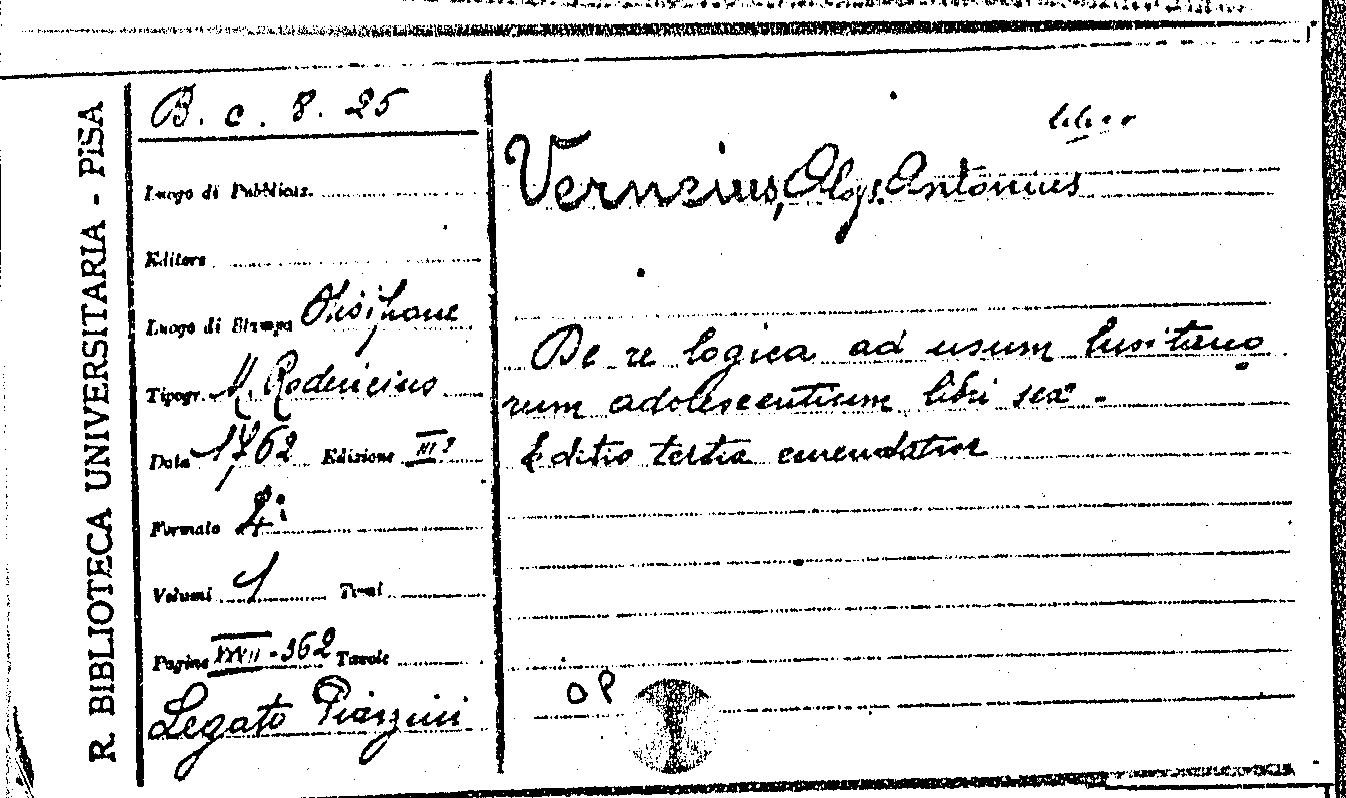 R. BIBLIOTECA UNIVERSITARIA - PISA
B. c. 8. 25
Luogo di Pubblicaz.
Editore
Luogo di Stampa Olisipone
Tipogr. M. Rodericius
Data 1762 Edizione III
Formato
Volumi 1 Tomi
Pagine XXVII-362 Tavole
Legato Piazzini
Verneius, Aloys. Antonius
De re logica ad usum lusitano
rum adolescentium libri sex -
Editio tertia emendatior
OP